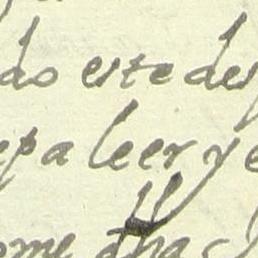 do este des
epa leer y e
ome